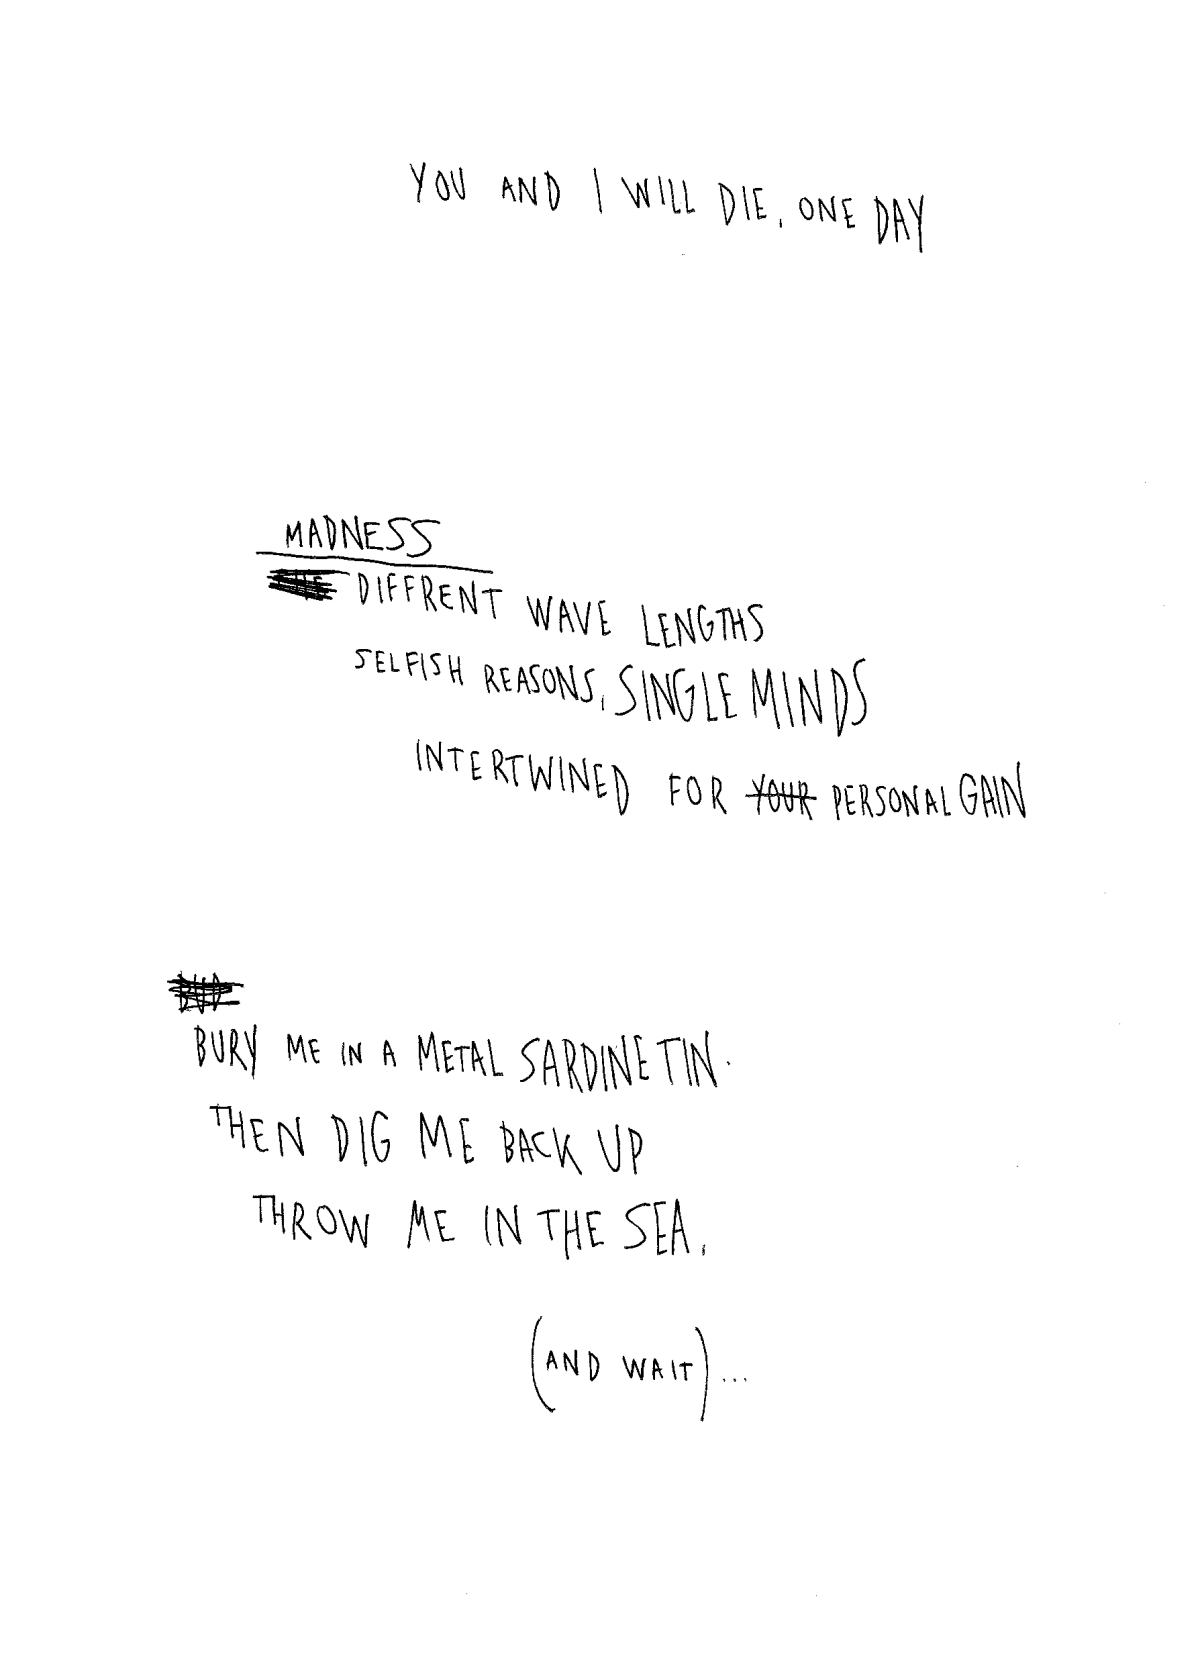 YOU AND I WILL DIE, ONE DAY
MADNESS
DIFFRENT WAVE LENGTHS
SELFISH REASONS, SINGLE MINDS
INTERTWINED FOR YOUR PERSONAL GAIN
BURY ME IN A METAL SARDINE TIN.
THEN DIG ME BACK UP
THROW ME IN THE SEA,
(AND WAIT)...